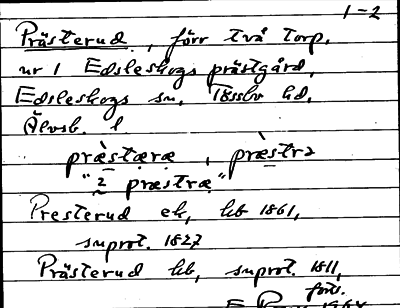 1-2
Prästerud, förr två torp.
nr 1 Edsleskogs prästgård,
Edsleskogs sn, Tössbo hd,
Älvsb. l
præ̀stæræ, præ̀strə
"2 præstræ"
Presterud ek, hb 1861,
suprot. 1827
Prästerud hb, suprot. 1811,
forts.